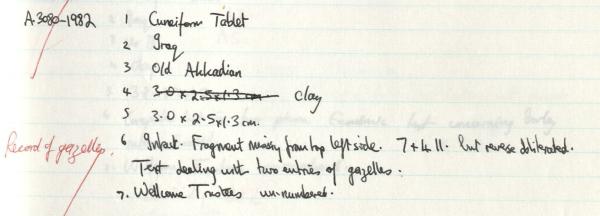 A.3080-1982 1 Cuneiform Tablet
2 Iraq
3 Old Akkadian
4 3.0 x 2.5 x 1.3 cm clay
5 3.0 x 2.5 x 1.3 cm.
Record of gazelles. 6 Intact. Fragment missing from top left side. 7 + 4 ll. but reverse obliterated.
Text dealing with two entries of gazelles.
7. Wellcome Trustees un-numbered.